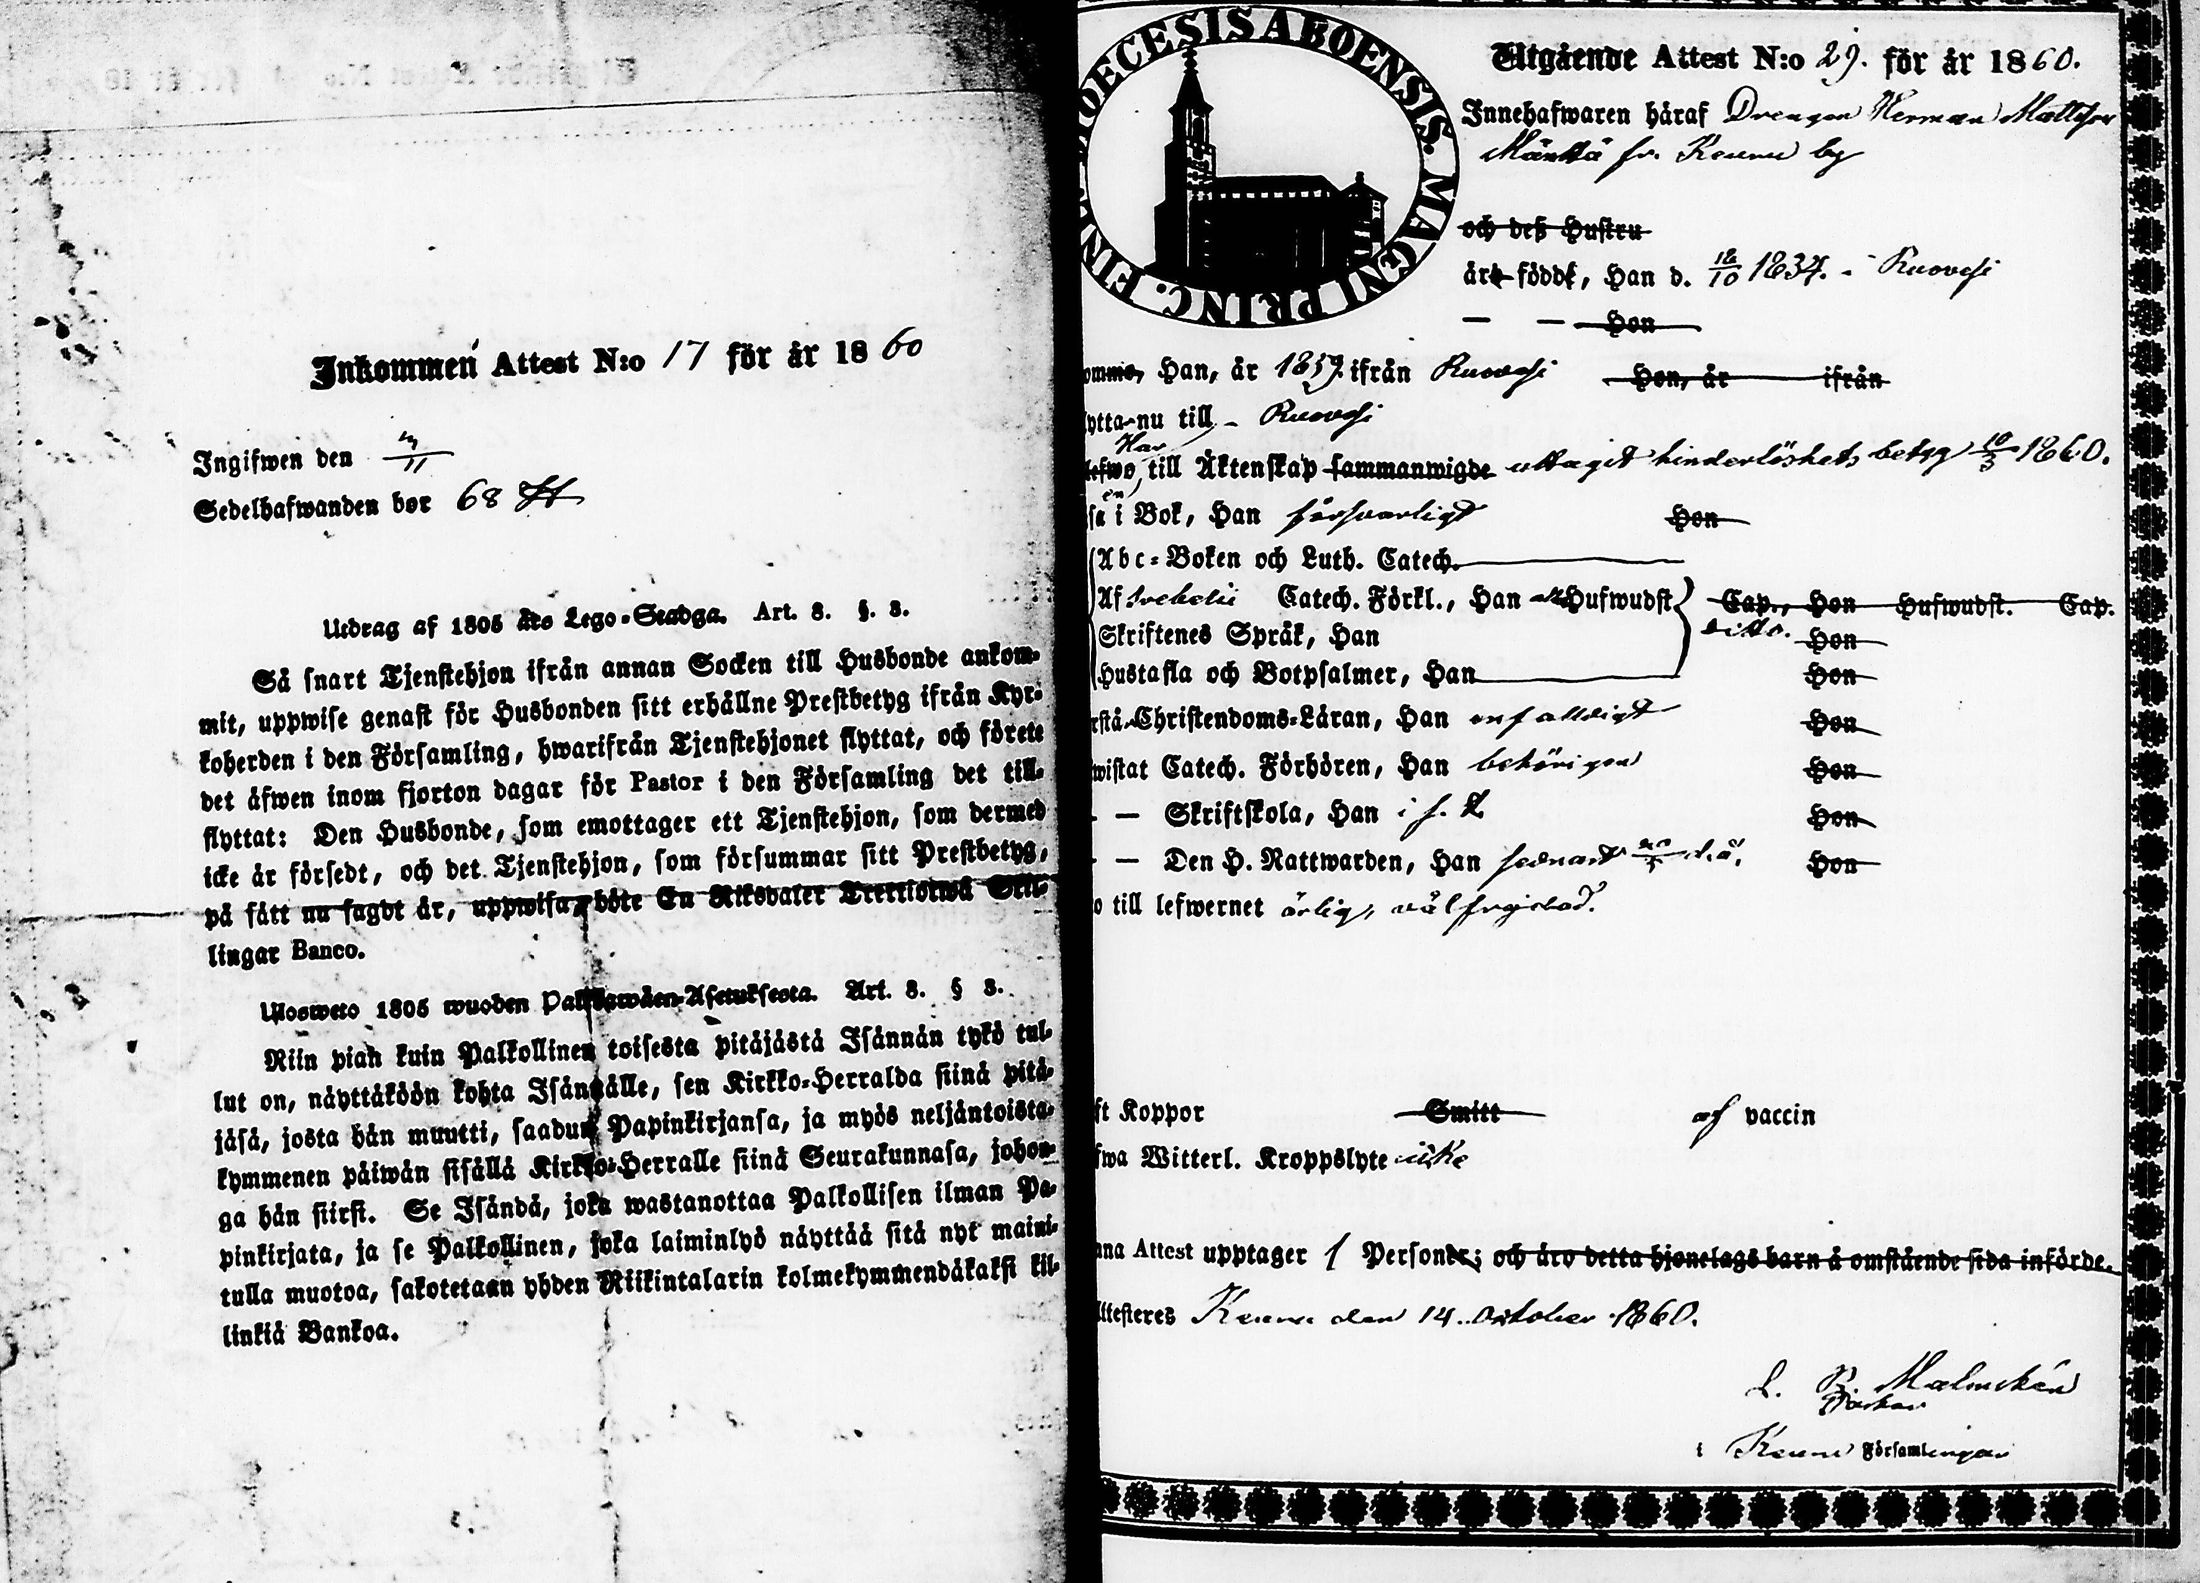 Inkommen Attest N:o 17 för år 1860
Ingifwen den
Sedelhafwanden bor 68
Utdrag af 1805 års Lego-Stadga. Art. 3. §. 3.
Så snart Tjenstehjon ifrån annan Socken till Husbonde ankom-
mit, uppwise genast för Husbonden sitt erhållne Prestbetyg ifrån Kyr-
koherden i den Församling, hwarifrån Tjenstehjonet flyttat, och förete
det äfwen inom fjorton dagar för Pastor i den Församling det till-
flyttat: Den Husbonde, som emottager ett Tjenstehjon, som dermed
icke är försedt, och det Tjenstehjon, som försummar sitt Prestbetyg,
på sätt nu sagdt är, uppwisa, böte En Riksdaler Trettiotwå Skil-
lingar Banco.
Ulosweto 1805 wuoden Palkkawäen-Asetuksesta. Art. 3. § 3.
Niin pian kuin Palkollinen toisesta pitäjästä Isännän tykö tul-
lut on, näyttäköön kohta Isännälle, sen Kirkko-Herralda siinä pitä-
jäsä, josta hän muutti, saadun Papinkirjansa, ja myös neljäntoista-
kymmenen päiwän sisällä Kirkko-Herralle siinä Seurakunnasa, johon-
ga hän siirsi. Se Isändä, joka wastanottaa Palkollisen ilman Pa-
pinkirjata, ja se Palkollinen, joka laiminlyö näyttää sitä nyt maini-
tulla muotoa, sakotetaan yhden Riikintalarin kolmekymmendäkaksi kil-
linkiä Bankoa.
DIOECESIS ABOENSIS. MAGNI PRINC. FIN
Utgående Attest N:o 29. för år 1860.
Innehafwaren häraf Drengen Herman Mattsson
Mänttä fr. Keuru by
och deß Hustru
äro födde, Han d. 18/10 1834. i Ruovesi
— — Hon
omme, Han, år 1859 ifrån Ruovesi Hon, år ifrån
lytta nu till Ruovesi
Har
lefwo, till Äktenskap sammanwigde uttagit hinderlöshets betyg 10/3 1860.
en
i Bok, Han försvarligt Hon
Abc-Boken och Luth. Catech.
Af Svebelii Catech. Förkl., Han Hufwudst Cap., Hon Hufwudst. Cap.
Skriftenes Språk, Han ditto. Hon
Hustafla och Botpsalmer, Han Hon
rstå Christendoms-Läran, Han enfaldigt Hon
wistat Catech. Förhören, Han behörigen Hon
— — Skriftskola, Han i Hon
— — Den H. Nattwarden, Han senast d. å. Hon
o till lefwernet ärlig, välfrejdad.
ft Koppor Smitt af vaccin
fwa Witterl. Kroppslyte icke
nna Attest upptager 1 Personer; och äro detta hjonelags barn å omstående sida införde.
Attesteres Keuru den 14. October 1860.
Malmstén
Pastor
i Keuru Församlingar